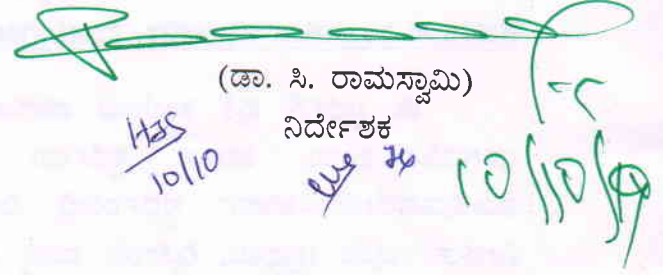 (ಡಾ. ಸಿ. ರಾಮಸ್ವಾಮಿ)
ನಿರ್ದೇಶಕ
10/10
10/10/19